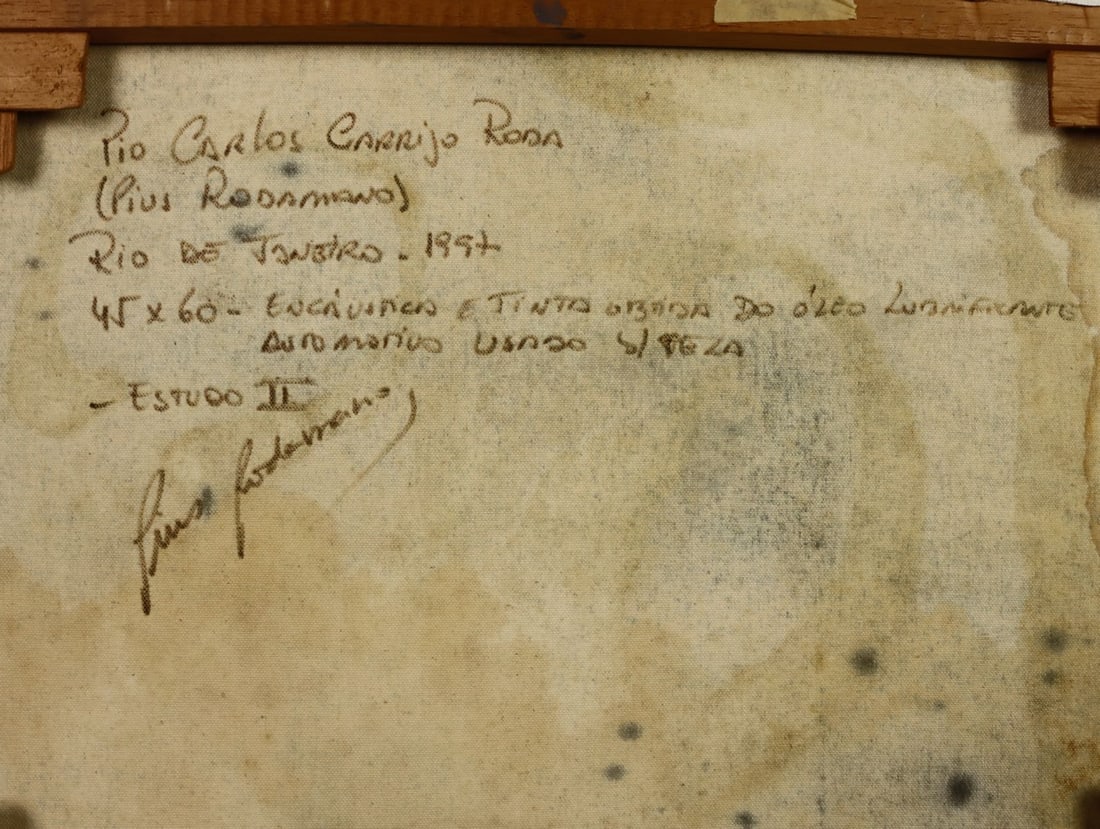 Pio Carlos Carrijo Roda
(Pius Rodamano)
Rio de Janeiro - 1997
45 x 60 - Encáustica e tinta obtida do óleo lubrificante
automotivo usado s/ tela
- Estudo II
Pius Rodamano